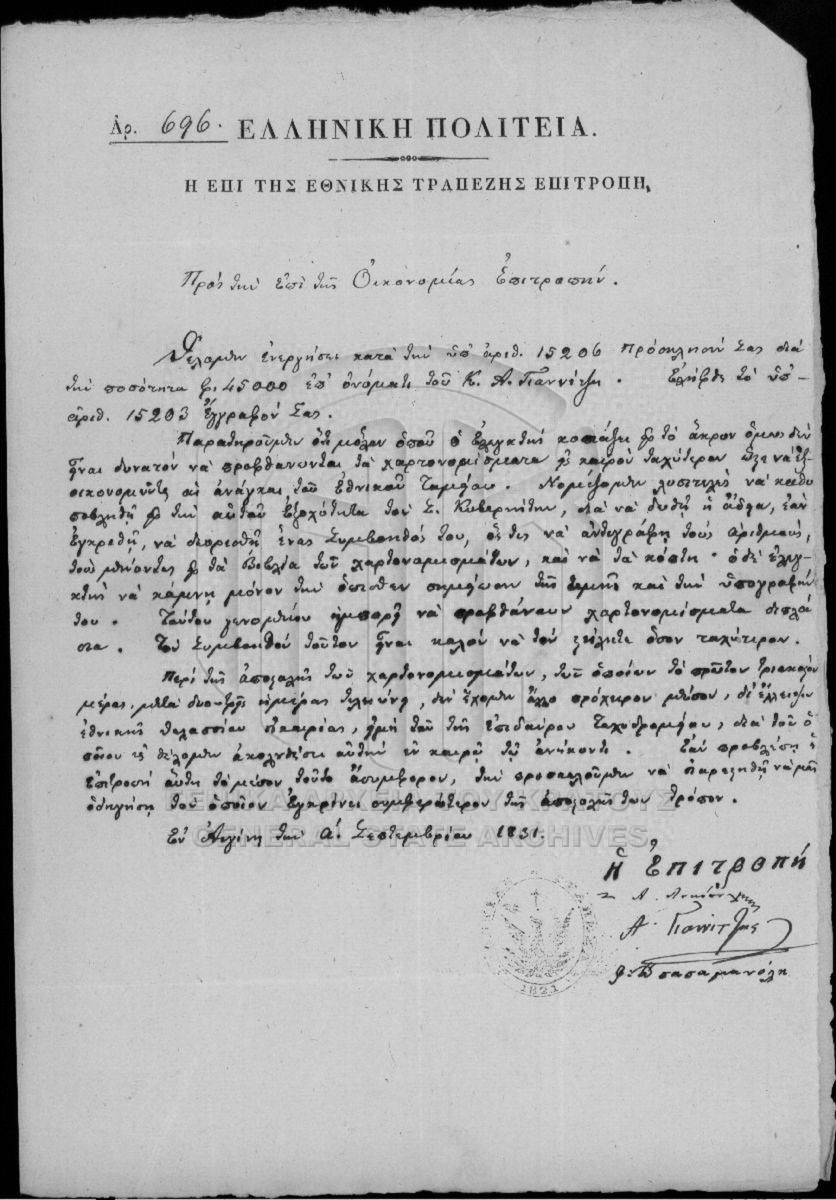 Ἀρ. 696. ΕΛΛΗΝΙΚΗ ΠΟΛΙΤΕΙΑ.
Η ΕΠΙ ΤΗΣ ΕΘΝΙΚΗΣ ΤΡΑΠΕΖΗΣ ΕΠΙΤΡΟΠΗ,
Πρὸς τὴν ἐπὶ τῆς Οἰκονομίας Ἐπιτροπήν.
Θέλομεν ἐνεργήσει κατὰ τὴν ὑπ' ἀριθ. 15206 πρόσκλησίν Σας διὰ
τὴν ποσότητα 45000 ἐπ' ὀνόματι τοῦ Κ. Α. Γιαννίτζη. Ἐλήφθη τὸ ὑπ'
ἀριθ. 15203 ἔγγραφόν Σας.
Παρατηροῦμεν ὅτι μ' ὅλον ὁποῦ ὁ ἐλεγκτὴς κοπιάζει τὸ ἄκρον ὅμως δὲν
εἶναι δυνατὸν νὰ προφθάνωνται τὰ χαρτονομίσματα καιρὸν ταχύτερον ὥστε νὰ ἐξ
οικονομῶνται αἱ ἀνάγκαι τοῦ Ἐθνικοῦ Ταμείου. Νομίζομεν λυσιτελὲς νὰ καθυ
ποβληθῇ τὴν αὐτοῦ Ἐξοχότητα τὸν Σ. Κυβερνήτην, διὰ νὰ δοθῇ ἡ ἄδεια, ἐὰν
ἐγκριθῇ, νὰ διορισθῇ ἕνας Συμβοηθός του, ὅστις νὰ ἀντιγράφῃ τοὺς ἀριθμούς,
τοὺς μπαίνοντας τὰ βιβλία τῶν χαρτονομισμάτων, καὶ νὰ τὰ κόπτῃ· ὁ δὲ ἐλεγ-
κτὴς νὰ κάμνῃ μόνον τὴν ὄπισθεν σημείωσιν τῆς τιμῆς καὶ τὴν ὑπογραφήν
του. Τούτου γενομένου ἠμπορεῖ νὰ προφθάνουν χαρτονομίσματα διπλά
σια. Τὸν Συμβοηθὸν τοῦτον εἶναι καλὸν νὰ τὸν στείλητε ὅσον ταχύτερον.
Περὶ τῆς ἀποστολῆς τῶν χαρτονομισμάτων, τῶν ὁποίων τὸ πρῶτον
μετὰ ἡμέρας τελειώνει, δὲν ἔχομεν ἄλλο πρόχειρον μέσον, δι' ἔλλειψιν
ἐθνικῆς θαλασσίου εὐκαιρίας, εἰμὴ τὸν τῆς Ἐπιδαύρου ταχυδρομείου, διὰ τοῦ ὁ
ποίου θέλομεν ἀκολουθήσει αὐτὴν ἐν καιρῷ τῷ ἀνήκοντι. Ἐὰν προβλέπῃ ἡ
ἐπιτροπὴ αὕτη τὸ μέσον τοῦτο ἀσύμφορον, τὴν προσκαλοῦμεν νὰ εὐαρεστηθῇ νὰ μᾶς
ὁδηγήσῃ τὸν ὁποῖον ἐγκρίνει συμφερώτερον τῆς ἀποστολῆς των τρόπον.
Ἐν Αἰγίνῃ τὴν Α΄. Σεπτεμβρίου 1831.
Ἡ Ἐπιτροπή
Α. Γιαννίτζης
1821
ΓΕΝΙΚΑ ΑΡΧΕΙΑ ΤΟΥ ΚΡΑΤΟΥΣ
GENERAL STATE ARCHIVES